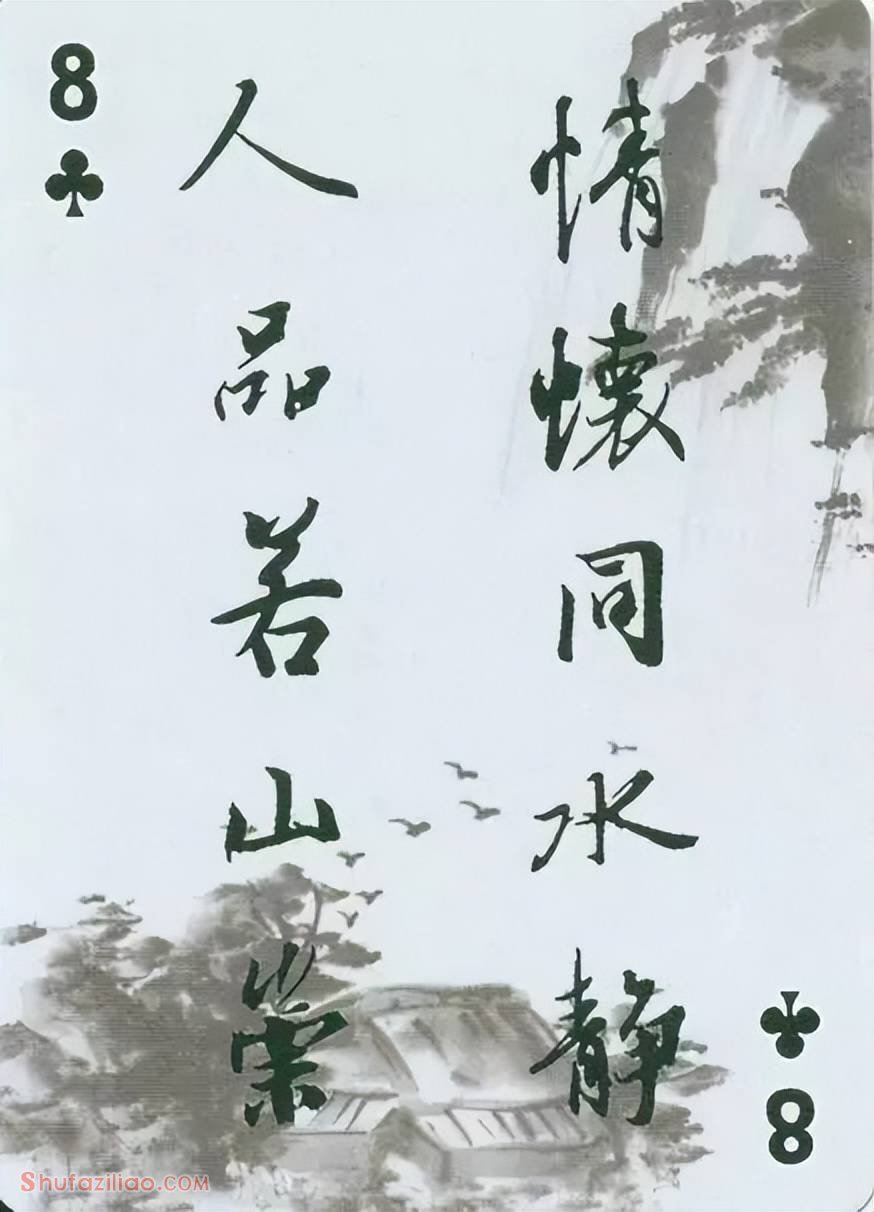 8
情懷同水静
人品若山崇
8
Shufaziliao.com